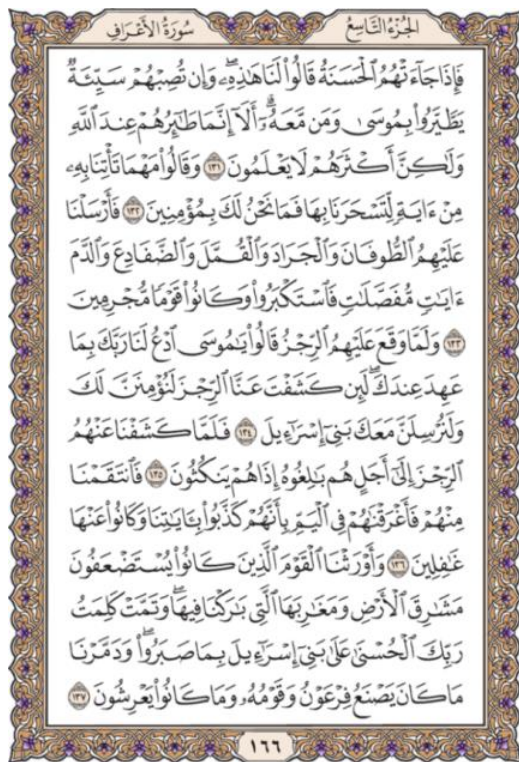 الجُزْءُ التَّاسِعُ
سُورَةُ الأَعْرَافِ
فَإِذَا جَآءَتْهُمُ ٱلْحَسَنَةُ قَالُوا۟ لَنَا هَٰذِهِۦ ۖ وَإِن تُصِبْهُمْ سَيِّئَةٌ
يَطَّيَّرُوا۟ بِمُوسَىٰ وَمَن مَّعَهُۥٓ ۗ أَلَآ إِنَّمَا طَٰٓئِرُهُمْ عِندَ ٱللَّهِ
وَلَٰكِنَّ أَكْثَرَهُمْ لَا يَعْلَمُونَ ١٣١ وَقَالُوا۟ مَهْمَا تَأْتِنَا بِهِۦ
مِنْ ءَايَةٍ لِّتَسْحَرَنَا بِهَا فَمَا نَحْنُ لَكَ بِمُؤْمِنِينَ ١٣٢ فَأَرْسَلْنَا
عَلَيْهِمُ ٱلطُّوفَانَ وَٱلْجَرَادَ وَٱلْقُمَّلَ وَٱلضَّفَادِعَ وَٱلدَّمَ
ءَايَٰتٍ مُّفَصَّلَٰتٍ فَٱسْتَكْبَرُوا۟ وَكَانُوا۟ قَوْمًا مُّجْرِمِينَ
١٣٣ وَلَمَّا وَقَعَ عَلَيْهِمُ ٱلرِّجْزُ قَالُوا۟ يَٰمُوسَى ٱدْعُ لَنَا رَبَّكَ بِمَا
عَهِدَ عِندَكَ ۖ لَئِن كَشَفْتَ عَنَّا ٱلرِّجْزَ لَنُؤْمِنَنَّ لَكَ
وَلَنُرْسِلَنَّ مَعَكَ بَنِىٓ إِسْرَٰٓءِيلَ ١٣٤ فَلَمَّا كَشَفْنَا عَنْهُمُ
ٱلرِّجْزَ إِلَىٰٓ أَجَلٍ هُم بَٰلِغُوهُ إِذَا هُمْ يَنكُثُونَ ١٣٥ فَٱنتَقَمْنَا
مِنْهُمْ فَأَغْرَقْنَٰهُمْ فِى ٱلْيَمِّ بِأَنَّهُمْ كَذَّبُوا۟ بِـَٔايَٰتِنَا وَكَانُوا۟ عَنْهَا
غَٰفِلِينَ ١٣٦ وَأَوْرَثْنَا ٱلْقَوْمَ ٱلَّذِينَ كَانُوا۟ يُسْتَضْعَفُونَ
مَشَٰرِقَ ٱلْأَرْضِ وَمَغَٰرِبَهَا ٱلَّتِى بَٰرَكْنَا فِيهَا ۖ وَتَمَّتْ كَلِمَتُ
رَبِّكَ ٱلْحُسْنَىٰ عَلَىٰ بَنِىٓ إِسْرَٰٓءِيلَ بِمَا صَبَرُوا۟ ۖ وَدَمَّرْنَا
مَا كَانَ يَصْنَعُ فِرْعَوْنُ وَقَوْمُهُۥ وَمَا كَانُوا۟ يَعْرِشُونَ ١٣٧
١٦٦